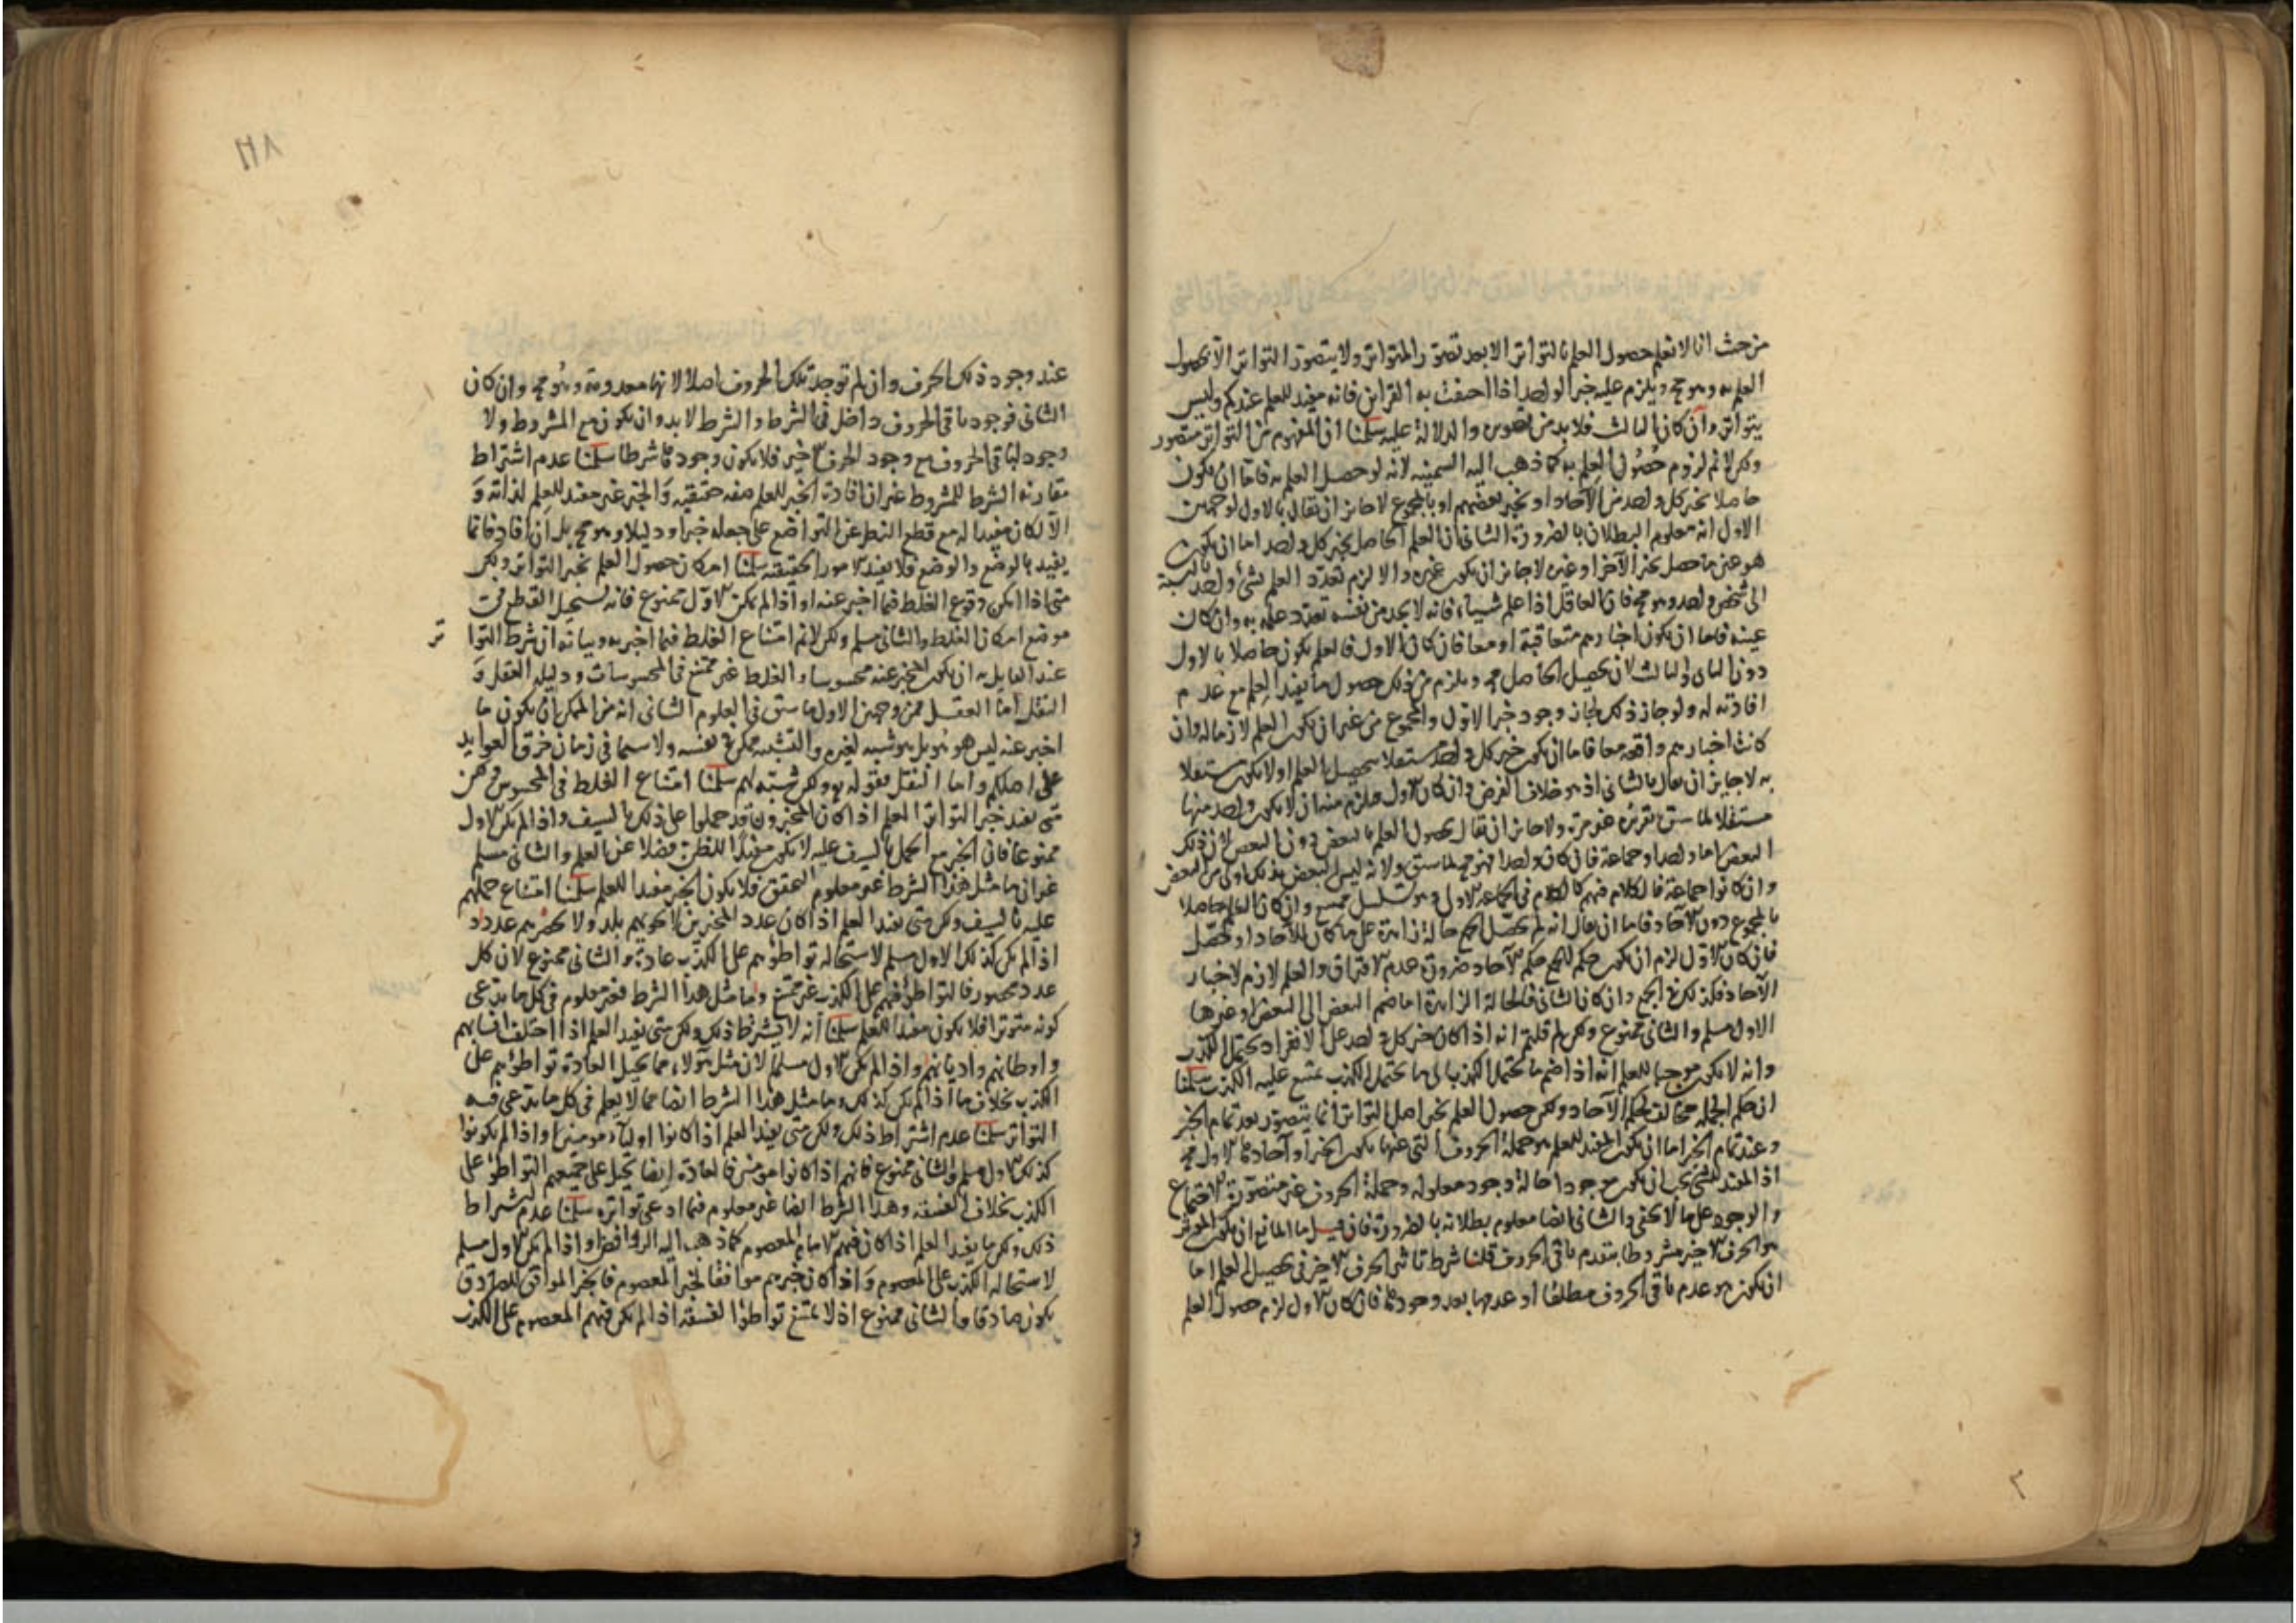 من حيث انا لا نعلم حصول العلم بالتواتر الا بعد تصور المتواتر ولا يتصور التواتر الا بحصول
العلم به وهو مح ويلزم عليه خبر الواحد اذا احتفت به القراين فانه مفيد للعلم عندكم وليس
بتواتر وان كان الثالث فلا بد من تصويره والدلالة عليه سلمنا ان المفهوم من التواتر متصور
ولكن لا نم لزوم حصول العلم به كما ذهب اليه السمنيه لانه لو حصل العلم به فاما ان يكون
حاصلا بخبر كل واحد من الآحاد او بخبر بعضهم او بالمجموع لا جايز ان يقال بالاول لوجهين
الاول انه معلوم البطلان بالضرورة الثاني ان العلم الحاصل بخبر كل واحد اما ان يكون
هو عين ما حصل بخبر الآخر او غيره لا جايز ان يكون غيره والا لزم تعدد العلم بشئ واحد بالنسبة
الى شخص واحد وهو مح فان العاقل اذا علم شيا فانه لا يجد من نفسه تعدد علمه به وان كان
عينه فاما ان يكون اخبارهم متعاقبة او معا فان كان الاول فالعلم يكون حاصلا بالاول
دون الثاني والثالث لان تحصيل الحاصل مح ويلزم من ذلك حصول ما يفيد العلم مع عدم
افادته له ولو جاز ذلك لجاز وجود خبر الاول والمجموع من غير ان يكون العلم لازما له وان
كانت اخبارهم واقعه معا فاما ان يكون خبر كل واحد مستقلا بتحصيل العلم او لا يكون مستقلا
به لا جايز ان يقال بالثاني اذ هو خلاف الفرض وان كان الاول فيلزم منه ان لا يكون واحد منها
مستقلا لما سبق تقريره غير مرة ولا جايز ان يقال بحصول العلم بالبعض دون البعض لان ذلك
البعض اما واحد او جماعة فان كان واحدا فهو مح لما سبق ولانه ليس البعض بذلك اولى من البعض
وان كانوا جماعة فالكلام فيهم كالكلام في الجماعة الاول وهو تسلسل ممتنع وان كان العلم حاصلا
بالمجموع دون الآحاد فاما ان يقال انه لم يحصل للجمع حالة زايدة على ما كان للآحاد او تحصل
فان كان الاول لزم ان يكون حكم الجمع حكم الآحاد ضرورة عدم الافتراق والعلم لازم لاخبار
الآحاد فكذلك في الجمع وان كان الثاني فالحالة الزايدة اما ضم البعض الى البعض او غيرها
الاول مسلم والثاني ممنوع ولكن لم قلتم انه اذا كان خبر كل واحد على الانفراد يحتمل الكذب
وانه لا يكون موجبا للعلم انه اذا ضم ما يحتمل الكذب الى ما يحتمل الكذب يمتنع عليه الكذب سلمنا
ان حكم الجملة مخالف لحكم الآحاد ولكن حصول العلم بخبر اهل التواتر انما يتصور بعد تمام الخبر
وعند تمام الخبر اما ان يكون المفيد للعلم هو جملة الحروف التي عنها يكون الخبر او آحادها الاول مح
اذ المفيد للشئ يجب ان يكون موجودا حالة وجود معلوله وجملة الحروف غير متصورة الاجتماع
والوجود على ما لا يخفى والثاني ايضا معلوم بطلانه بالضرورة فان قيل ما المانع ان يكون المؤثر
هو الحرف الاخير مشروطا بتقدم باقي الحروف قلنا شرط تاثير الحرف الاخير في تحصيل العلم اما
ان يكون هو عدم باقي الحروف مطلقا او عدمها بعد وجودها فان كان الاول لزم حصول العلم
١١٨
عند وجود ذلك الحرف وان لم توجد تلك الحروف اصلا لانها معدومة وهو مح وان كان
الثاني فوجود باقي الحروف داخل في الشرط والشرط لا بد وان يكون مع المشروط ولا
وجود لباقي الحروف مع وجود الحرف الاخير فلا يكون وجودها شرطا سلمنا عدم اشتراط
مقارنة الشرط للمشروط غير ان افادة الخبر للعلم صفه حقيقيه والخبر غير مفيد للعلم لذاته و
الا لكان مفيدا له مع قطع النظر عن التواضع على جعله خبرا ودليلا وهو مح بل ان افاد فانما
يفيد بالوضع والوضع فلا يفيد الامور الحقيقيه سلمنا امكان حصول العلم بخبر التواتر ولكن
متى اذا امكن وقوع الغلط فيما اخبر عنه او اذا لم يكن الاول ممنوع فانه يستحيل القطع في
موضع امكان الغلط والثاني مسلم ولكن لا نم امتناع الغلط فيما اخبر به وبيانه ان شرط التوا
تر
عند القايل به ان يكون المخبر عنه محسوسا والغلط غير ممتنع في المحسوسات ودليله العقل و
النقل اما العقل فمن وجهين الاول ما سبق في العلوم الثاني انه من الممكن ان يكون ما
اخبر عنه ليس هو هو بل هو شبيه لغيره والتشبيه ممكن في نفسه ولا سيما في زمان خرق العوايد
على اصلكم واما النقل فقوله تع ولكن شبه لهم سلمنا امتناع الغلط في المحسوس ولكن
متى يفيد خبر التواتر العلم اذا كان المخبرون قد حملوا على ذلك بالسيف واذا لم يكن الاول
ممنوع فان الخبر مع الحمل بالسيف عليه لا يكون مفيدا للظن فضلا عن العلم والثاني مسلم
غير ان ما مثل هذا الشرط غير معلوم التحقق فلا يكون الخبر مفيدا للعلم سلمنا امتناع حملهم
عليه بالسيف ولكن متى يفيد العلم اذا كان عدد المخبرين لا يحويهم بلد ولا يحصرهم عدد او
اذا لم يكن كذلك الاول مسلم لاستحالة تواطؤهم على الكذب عادة والثاني ممنوع لان كل
عدد محصور فالتواطؤ فيهم على الكذب غير ممتنع وما مثل هذا الشرط فغير معلوم في كل ما يدعى
كونه متوترا فلا يكون مفيدا للعلم سلمنا انه لا يشترط ذلك ولكن متى يفيد العلم اذا اختلف انسابهم
واوطانهم واديانهم واذا لم يكن الاول مسلم لان مثل هؤلاء مما يحيل العادة تواطؤهم على
الكذب بخلاف ما اذا لم يكن كذلك وما مثل هذا الشرط ايضا مما لا يعلم في كل ما يدعى فيه
التواتر سلمنا عدم اشتراط ذلك ولكن متى يفيد العلم اذا كانوا اولياء مومنين او اذا لم يكونوا
كذلك الاول مسلم والثاني ممنوع فانهم اذا كانوا مومنين فالعادة ايضا تحيل على جميعهم التواطؤ على
الكذب بخلاف الفسقه وهذا الشرط ايضا غير معلوم فيما ادعى تواتره سلمنا عدم اشتراط
ذلك ولكن ما يفيد العلم اذا كان فيهم الامام المعصوم كما ذهب اليه الروافض او اذا لم يكن الاول مسلم
لاستحالة الكذب على المعصوم واذا كان خبرهم موافقا لخبر المعصوم فالخبر الموافق للصادق
يكون صادقا والثاني ممنوع اذ لا يمتنع تواطؤ الفسقه اذا لم يكن فيهم المعصوم على الكذب